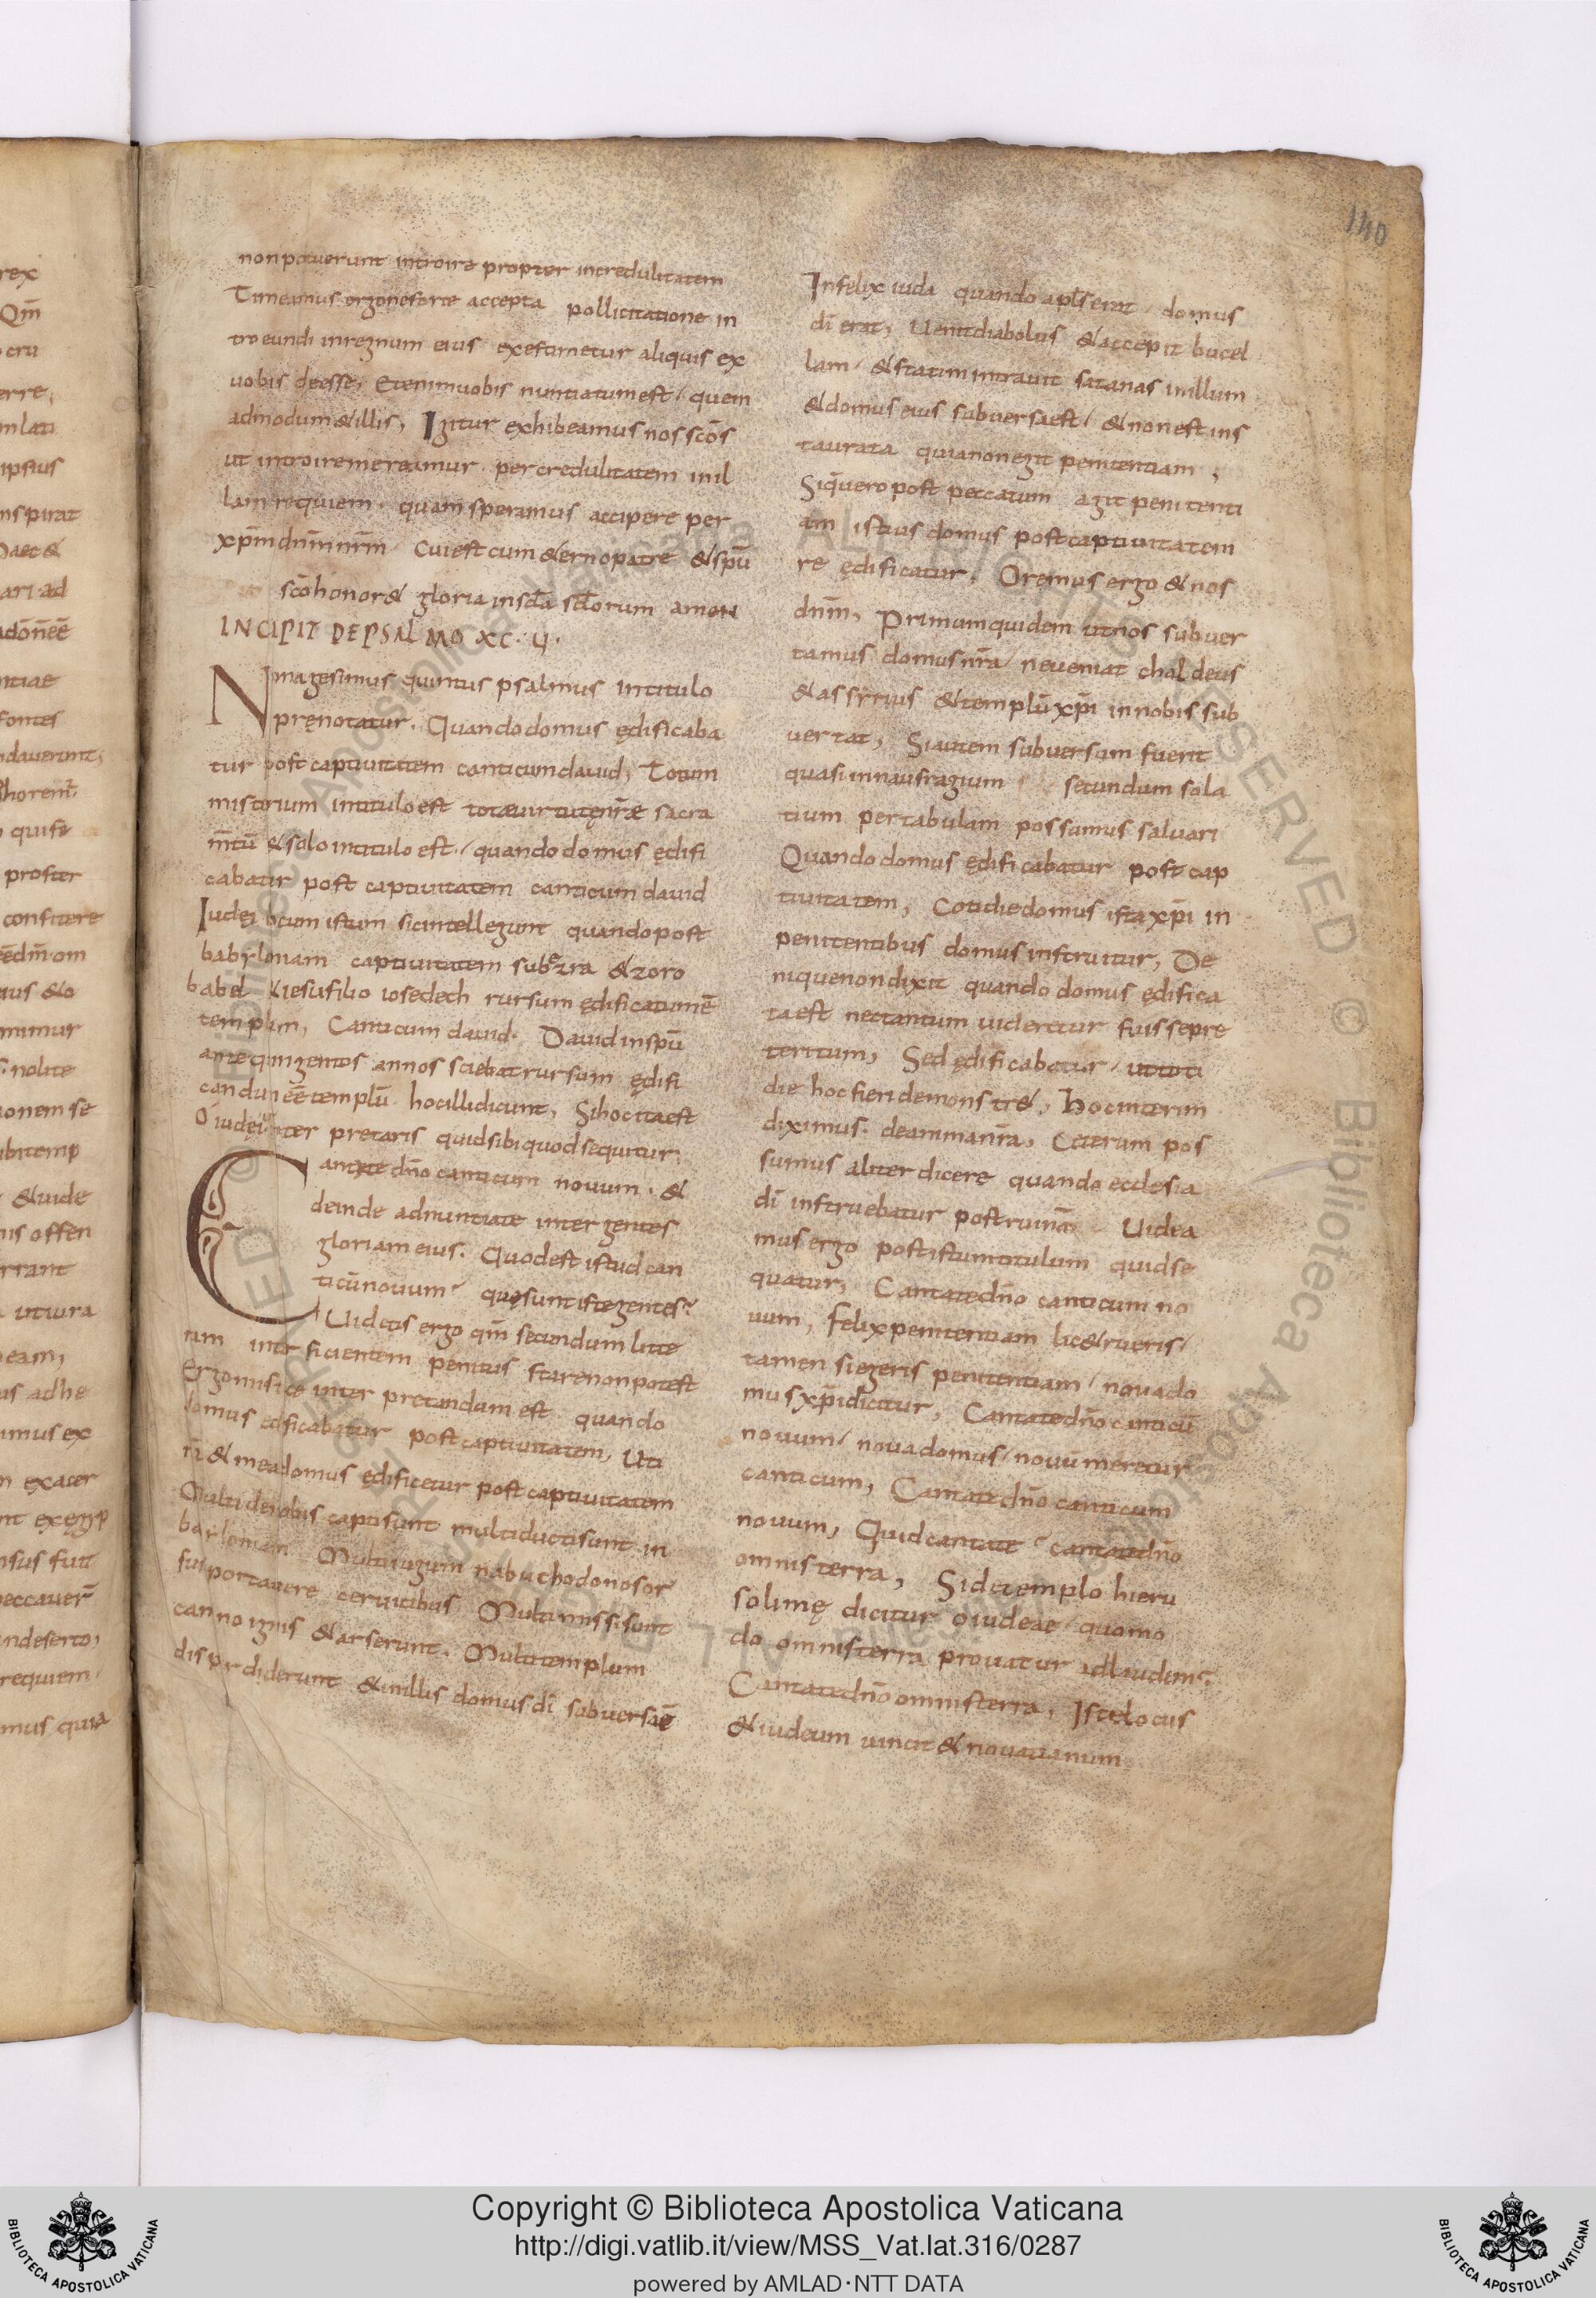 140
non potuerunt introire propter incredulitatem
Timeamus ergo ne forte accepta pollicitatione in
troeundi in regnum eius exestimetur aliquis ex
uobis deesse, Etenim uobis nuntiatum est, quem
admodum & illis, Igitur exhibeamus nos sc̄os
ut introire mereamur per credulitatem in il
lam requiem, quam speramus accipere per
xp̄m dn̄m nr̄m, Cui est cum &erno patre & spū
sc̄o honor & gloria in scl̄a scl̄orum amen
INCIPIT DE PSALMO XC·V·
Nonagesimus quintus psalmus in titulo
pręnotatur. Quando domus ędificaba
tur post captiuitatem canticum dauid, Totum
misterium in titulo est tota uirtute nr̄ae sacra
m̄tū & solo in titulo est, quando domus ędifi
cabatur post captiuitatem canticum dauid
Iudei locum istum sic intellegunt quando post
babylonam captiuitatem sub ezra & zoro
babel & iesu filio iosedech rursum ędificatum ē
templum, Canticum dauid. Dauid in spū
ante quingentos annos sciebat rursum ędifi
candum eē templū. hoc illi dicunt, Si hoc ita est
O iudei inter pretaris quid sibi quod sequitur,
Cantate dn̄o canticum nouum. &
deinde adnuntiate inter gentes
gloriam eius. Quod est istud can
ticū nouum? quę sunt istę gentes?
Uiditis ergo qm̄ secundum litte
ram inter ficientem penitus stare non potest
Ergo mistice inter pretandum est quando
domus edificabatur post captiuitatem, Uti
n̄ & mea domus ędificetur post captiuitatem
Multi de nobis capti sunt multi ducti sunt in
babylonam Multi iugum nabuchodonosor
sui portauere ceruitibus, Multi missi sunt
camino ignis & arserunt. Multi templum
disperdiderunt & in illis domus dī subuersa ē
Infelix iuda quando apl̄s erat, domus
dī erat, Uenit diabolus & accepit bucel
lam, & statim intrauit satanas in illum
& domus eius subuersa est, & non est ins
taurata quia non egit penitentiam,
Siq̄ uero post peccatum agit penitenti
am istius domus post captiuitatem
re ędificatur, Oremus ergo & nos
dn̄m, Primum quidem ut nos subuer
tamus domus nr̄a, ne ueniat chaldeus
& assyrius & templū xp̄i in nobis sub
uertat, Si autem subuersam fuerit
quasi in naufragium secundum sola
tium per tabulam possumus saluari
Quando domus ędificabatur post cap
tiuitatem, Cotidie domus ista xp̄i in
penitentibus domus instruitur, De
nique non dixit quando domus ędifica
ta est nec tantum uideretur fuisse pre
teritum, Sed ędificabatur, ut coti
die hoc fieri demonstr&, Hoc interim
diximus. de anima nr̄a, Ceterum pos
sumus aliter dicere quando ecclesia
dī instruebatur post ruinā, Uidea
mus ergo post istum titulum quid se
quatur, Cantate dn̄o canticum no
uum, felix penitentiam lic& rueris,
tamen si egeris penitentiam, noua do
mus xp̄i dicitur, Cantate dn̄o canticū
nouum, noua domus, nouū meretur
canticum, Cantate dn̄o canticum
nouum, Quid cantate? cantate dn̄o
omnis terra, Si de templo hieru
solimę dicitur o iudeae, quomo
do omnis terra prouatur ad laudem?
Cantate dn̄o omnis terra, Iste locus
& iudeum uincit & nouatianum
Copyright © Biblioteca Apostolica Vaticana
http://digi.vatlib.it/view/MSS_Vat.lat.316/0287
powered by AMLAD·NTT DATA
BIBLIOTECA APOSTOLICA VATICANA
BIBLIOTECA APOSTOLICA VATICANA